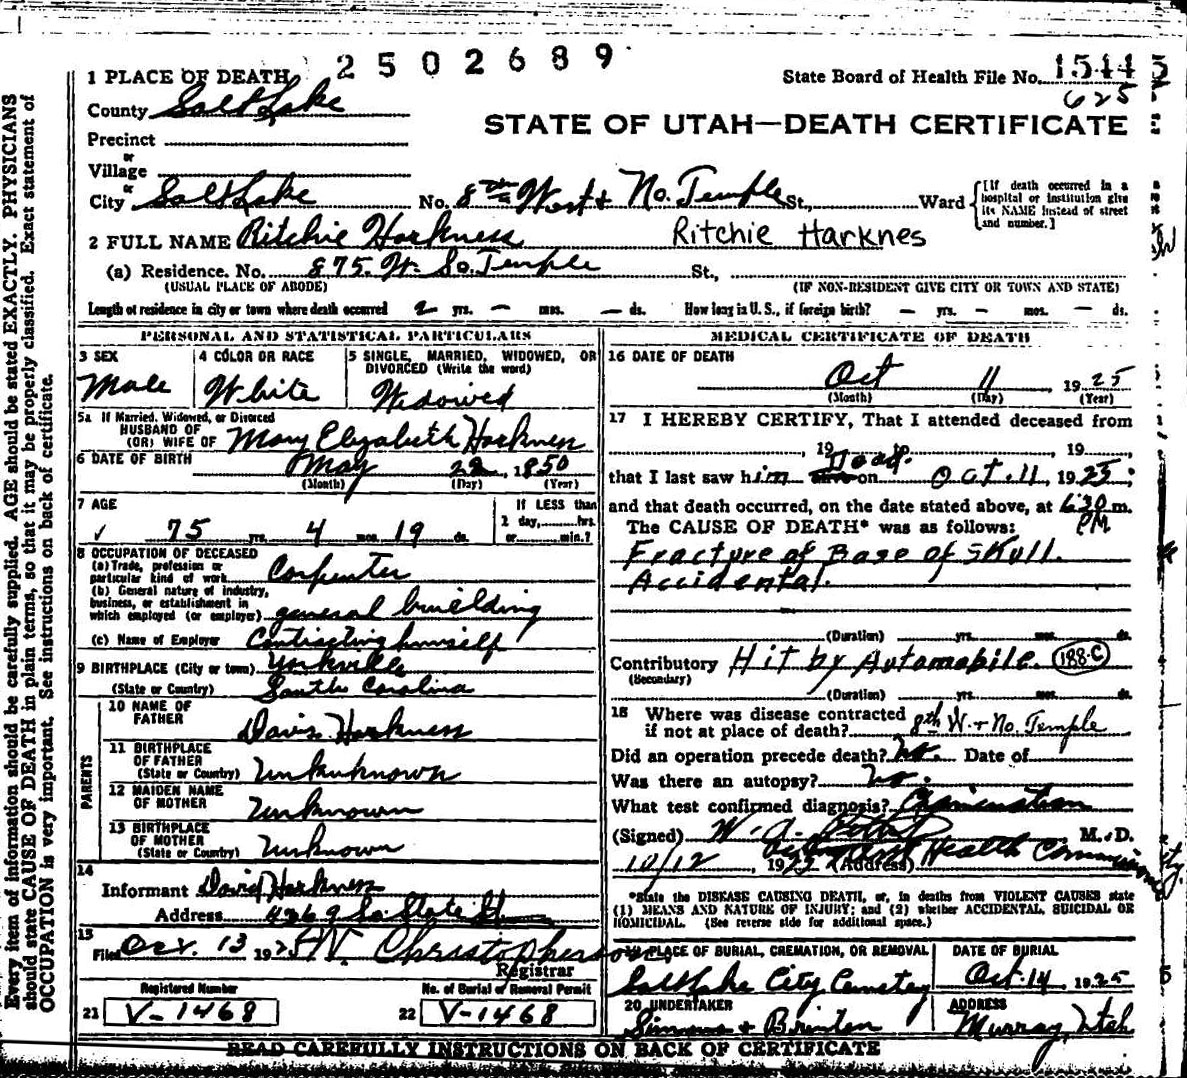 2502689
1 PLACE OF DEATH
State Board of Health File No. 1544
625
County Salt Lake
STATE OF UTAH—DEATH CERTIFICATE
Precinct
or
Village
or
City Salt Lake No. 8th West + No. Temple St., Ward
[If death occurred in a hospital or institution give its NAME instead of street and number.]
2 FULL NAME Ritchie Harkness Ritchie Harknes
(a) Residence. No. 875. W. So. Temple St.,
(USUAL PLACE OF ABODE) (IF NON-RESIDENT GIVE CITY OR TOWN AND STATE)
Length of residence in city or town where death occurred 2 yrs. — mos. — ds. How long in U. S., if foreign birth? — yrs. — mos. — ds.
PERSONAL AND STATISTICAL PARTICULARS
3 SEX
Male
4 COLOR OR RACE
White
5 SINGLE, MARRIED, WIDOWED, OR DIVORCED (Write the word)
Widowed
5a If Married, Widowed, or Divorced
HUSBAND OF
(OR) WIFE OF Mary Elizabeth Harkness
6 DATE OF BIRTH May 22 1850
(Month) (Day) (Year)
7 AGE
75 yrs. 4 mos. 19 ds.
If LESS than
1 day, hrs.
or min.?
8 OCCUPATION OF DECEASED
(a) Trade, profession or
particular kind of work Carpenter
(b) General nature of industry,
business, or establishment in
which employed (or employer) general building
(c) Name of Employer Contracting himself
9 BIRTHPLACE (City or town) Yorkville
(State or Country) South Carolina
PARENTS
10 NAME OF
FATHER Davis Harkness
11 BIRTHPLACE
OF FATHER
(State or Country) Unkunknown
12 MAIDEN NAME
OF MOTHER Unknown
13 BIRTHPLACE
OF MOTHER
(State or Country) Unknown
14
Informant David Harkness
Address 4269 So. State St
15
Filed Oct. 13 1925 W. Christopherson
Registrar
Registered Number
21 V-1468
No. of Burial or Removal Permit
22 V-1468
MEDICAL CERTIFICATE OF DEATH
16 DATE OF DEATH
Oct 11, 1925
(Month) (Day) (Year)
17 I HEREBY CERTIFY, That I attended deceased from
, 19 , 19
that I last saw him alive Dead on Oct. 11, 1925;
and that death occurred, on the date stated above, at 6:30 m.
PM
The CAUSE OF DEATH* was as follows:
Fracture of Base of Skull.
Accidental.
(Duration) yrs. mos. ds.
Contributory Hit by Automobile. 188-C
(Secondary)
(Duration) yrs. mos. ds.
18 Where was disease contracted
if not at place of death? 8th W. + No. Temple
Did an operation precede death? No. Date of
Was there an autopsy? No.
What test confirmed diagnosis? Examination
(Signed) W. A. M. D.
10/12 1925 (Address) Health Commissioner
*State the DISEASE CAUSING DEATH, or, in deaths from VIOLENT CAUSES state
(1) MEANS AND NATURE OF INJURY; and (2) whether ACCIDENTAL, SUICIDAL OR
HOMICIDAL. (See reverse side for additional space.)
19 PLACE OF BURIAL, CREMATION, OR REMOVAL
Salt Lake City Cemetery
DATE OF BURIAL
Oct. 14, 1925
20 UNDERTAKER
Simmons + Brinton
ADDRESS
Murray, Utah
READ CAREFULLY INSTRUCTIONS ON BACK OF CERTIFICATE
Every item of information should be carefully supplied. AGE should be stated EXACTLY. PHYSICIANS
should state CAUSE OF DEATH in plain terms, so that it may be properly classified. Exact statement of
OCCUPATION is very important. See instructions on back of certificate.